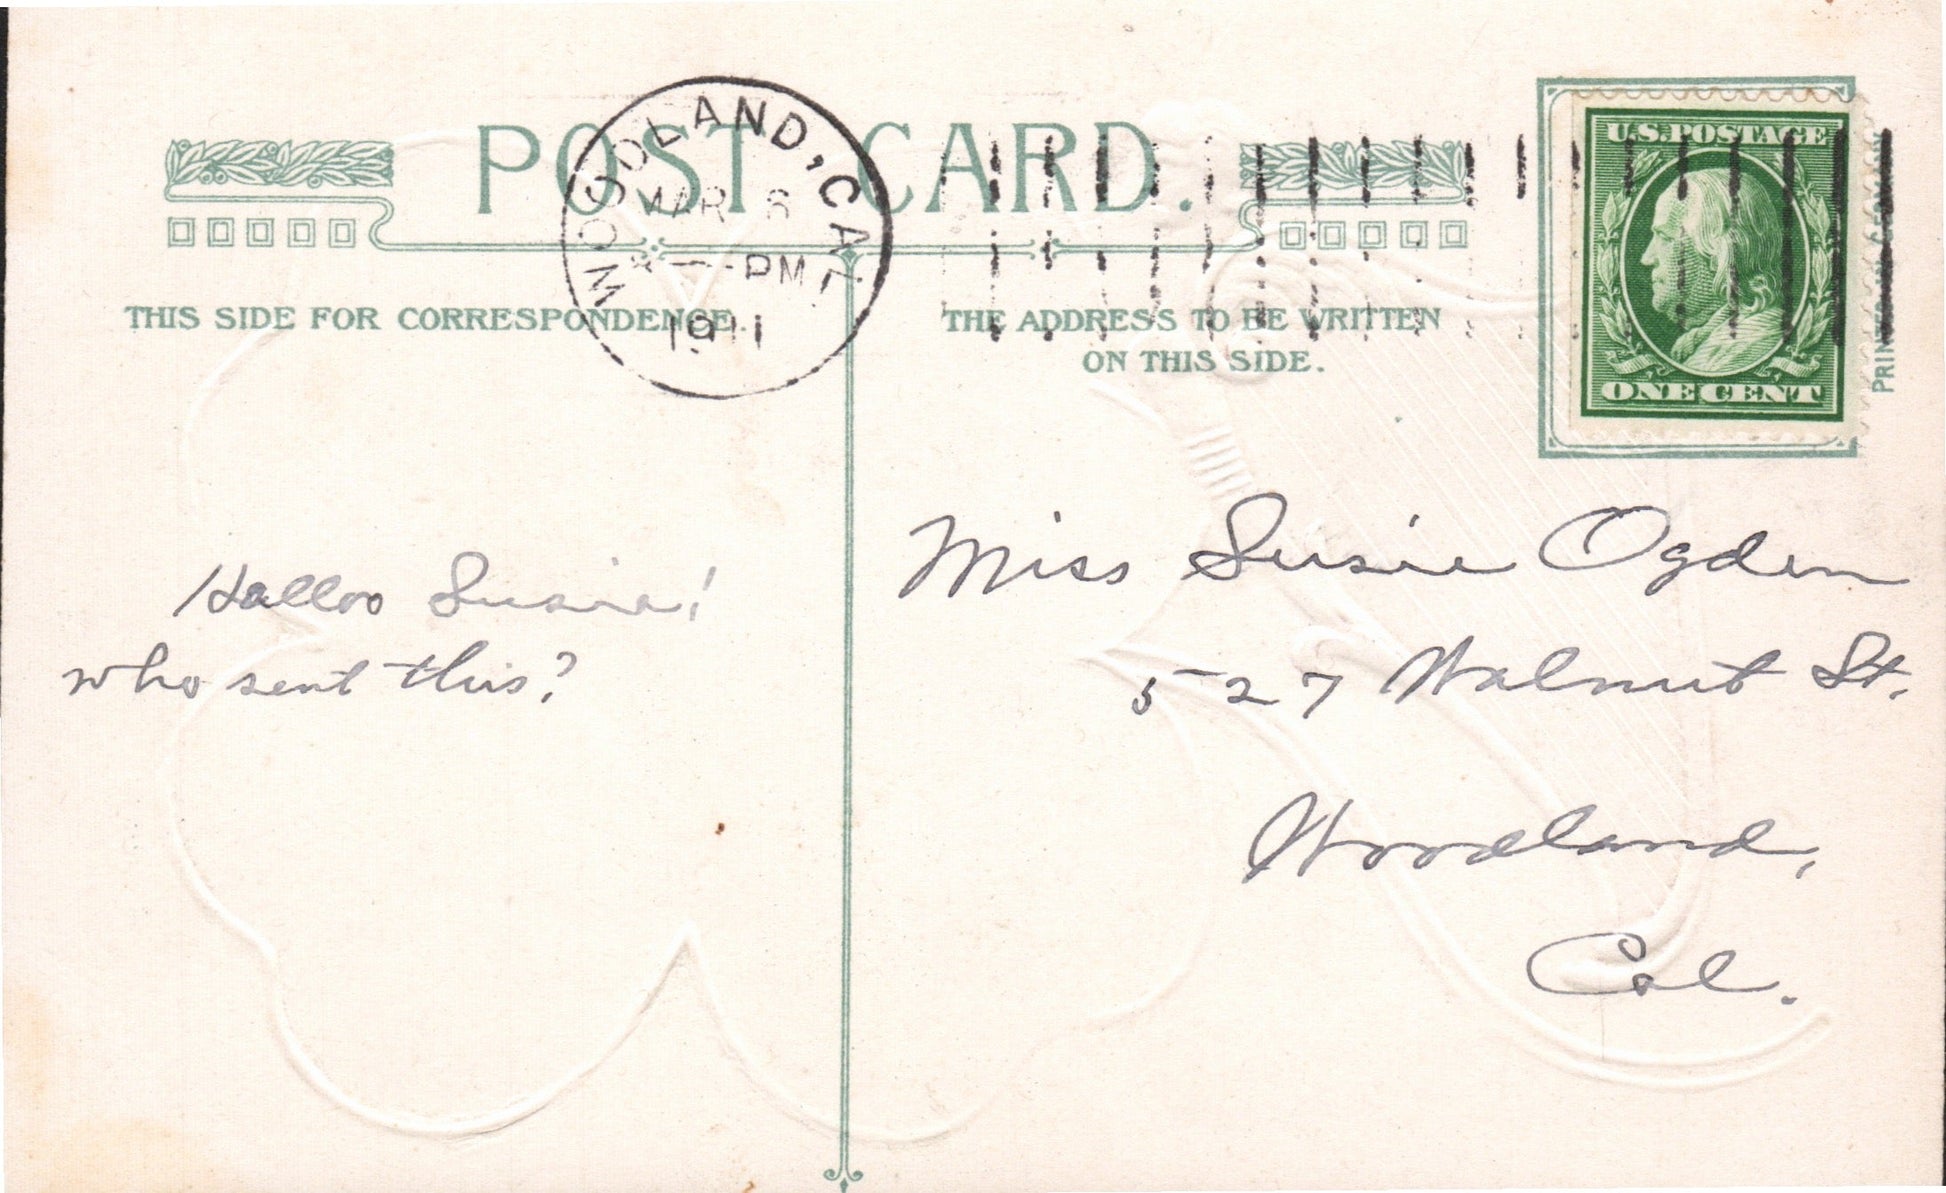 POST CARD.
WOODLAND, CAL.
MAR 6
1 - PM
1911
THIS SIDE FOR CORRESPONDENCE.
THE ADDRESS TO BE WRITTEN
ON THIS SIDE.
U.S. POSTAGE
ONE CENT
Halloo Susie!
who sent this?
Miss Susie Ogden
527 Walnut St.
Woodland,
Cal.